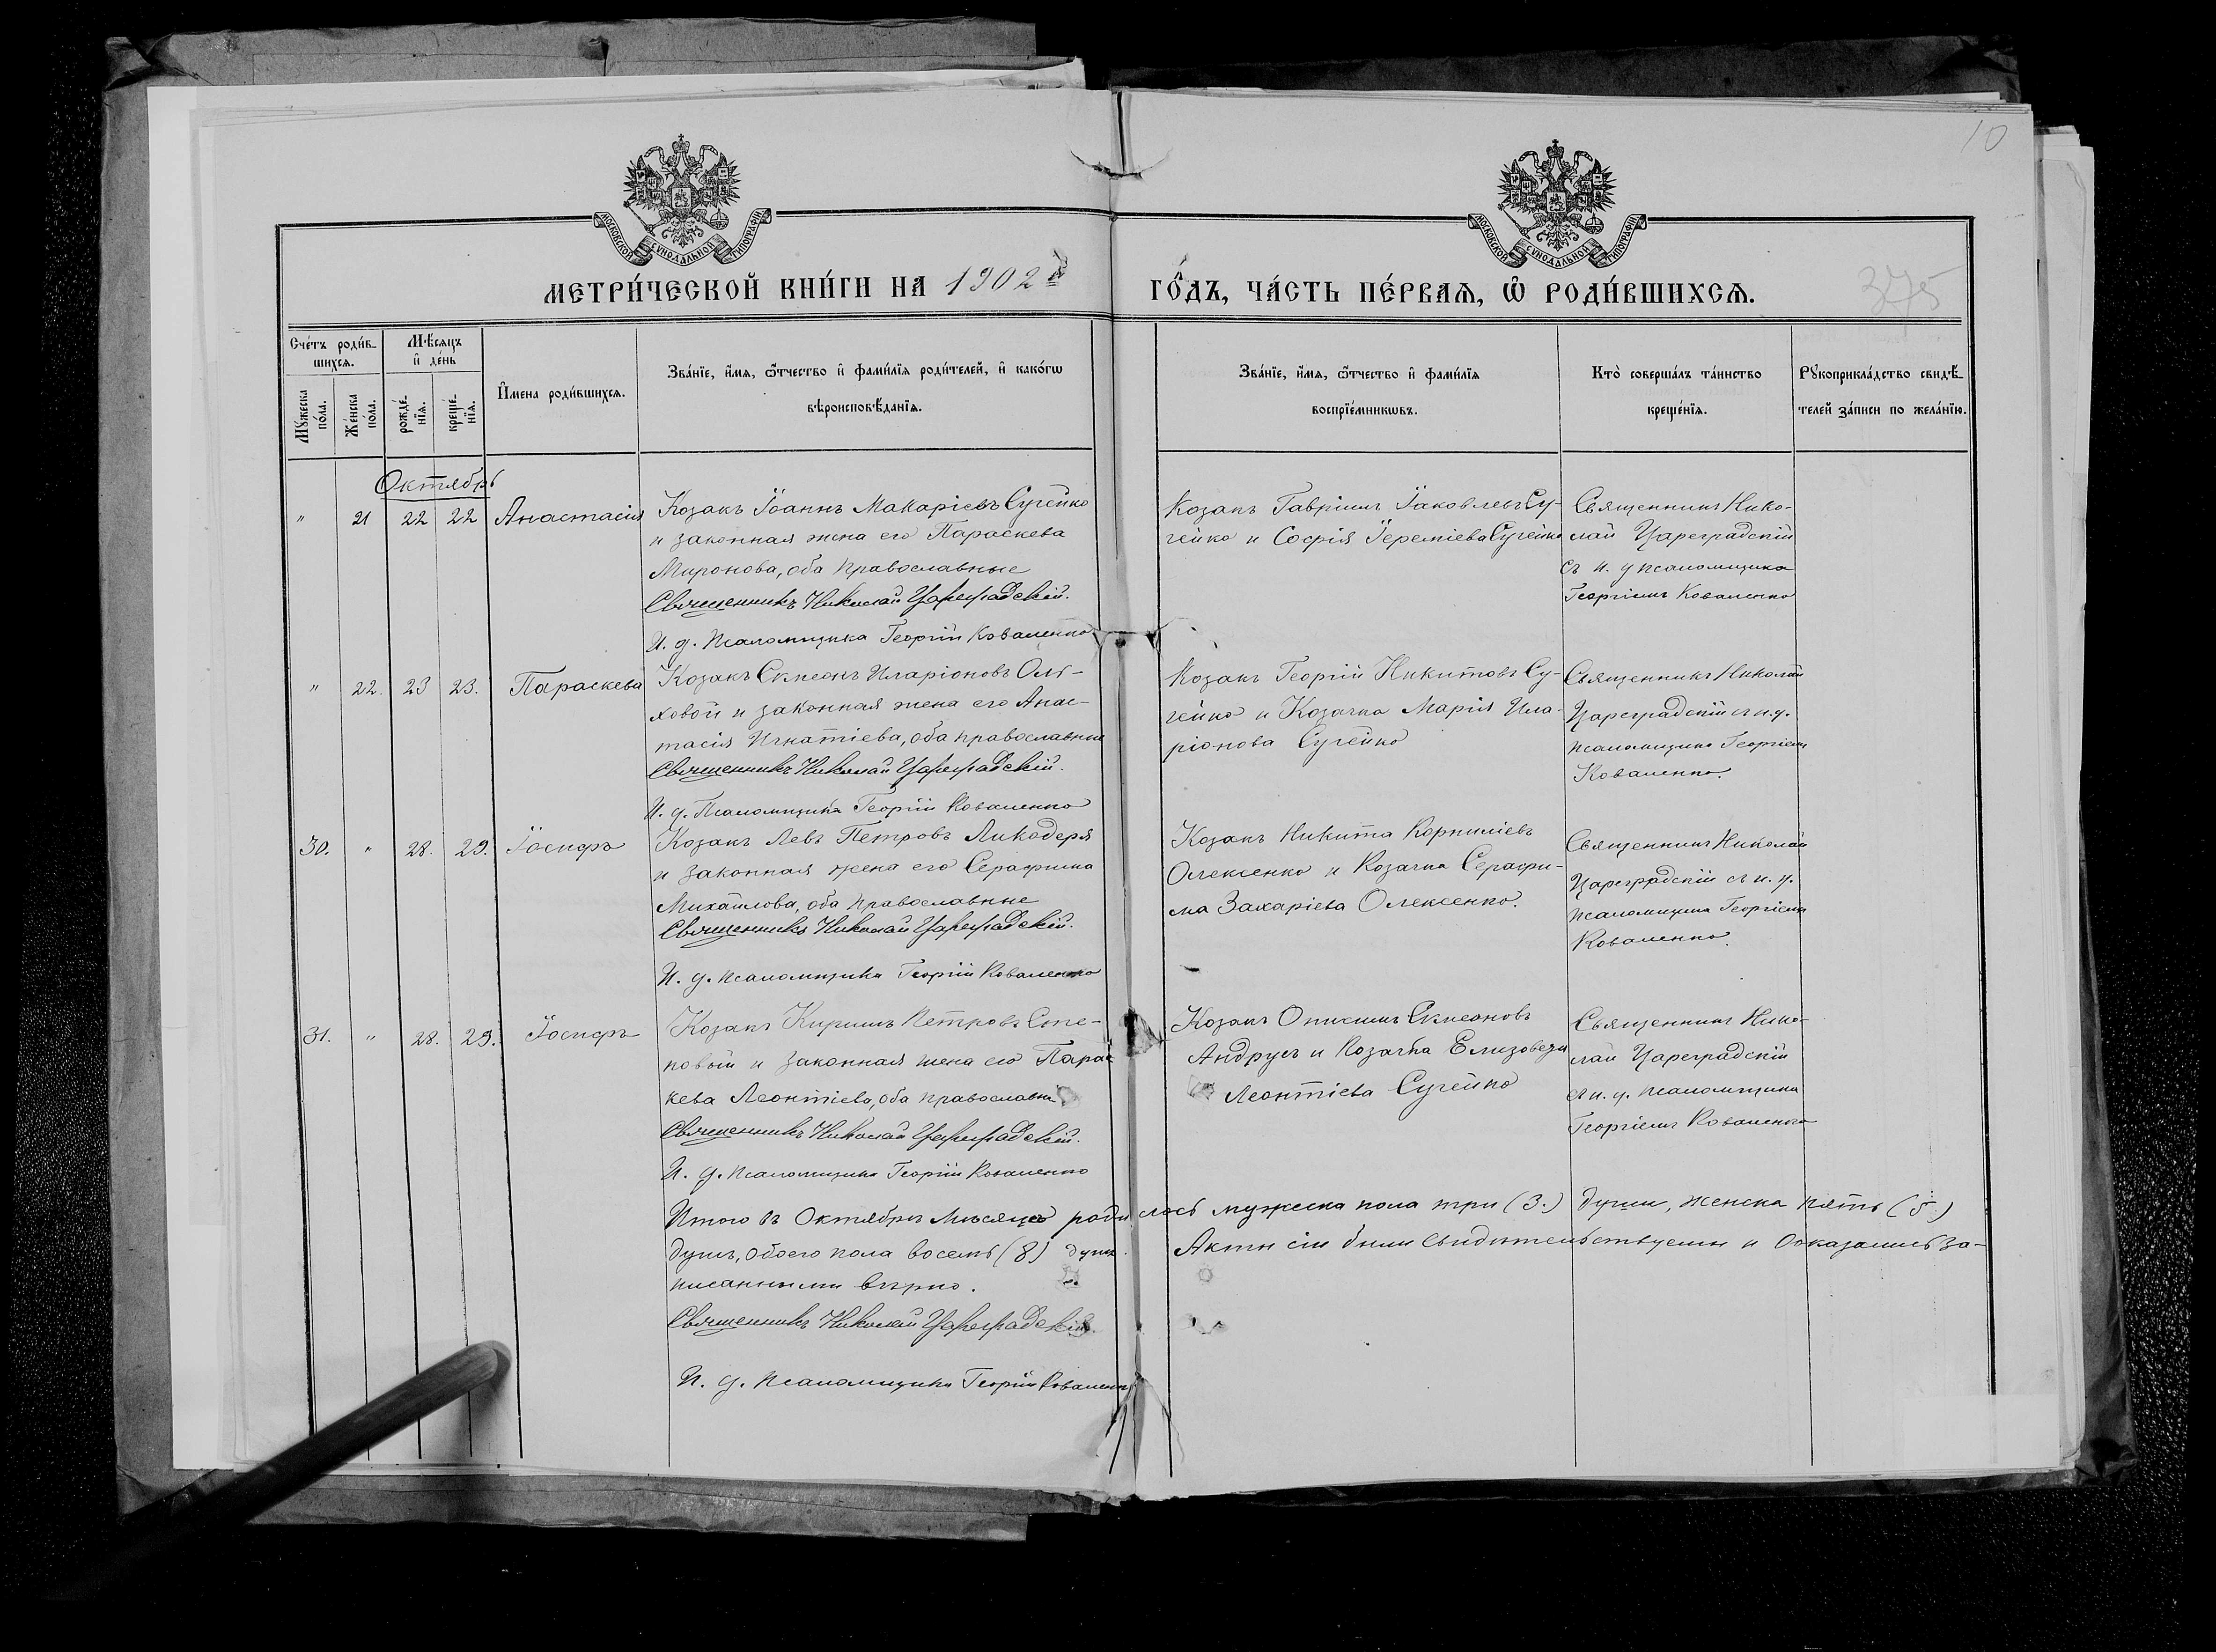 10
МОСКОВСКОЙ СѴНОДАЛЬНОЙ ТИПОГРАФІИ
МОСКОВСКОЙ СѴНОДАЛЬНОЙ ТИПОГРАФІИ
МЕТРИ́ЧЕСКОЙ КНИ́ГИ НА 1902й ГО́ДЪ, ЧА́СТЬ ПЕ́РВАѦ, Ѡ҆ РОДИ́ВШИХСѦ.
375
Сче́тъ роди́в-
шихсѧ.
Мꙋ́жеска
по́ла.
Же́нска
по́ла.
Мѣ́сѧцъ
и҆ де́нь
рожде́-
нїѧ.
креще́-
нїѧ.
И҆мена роди́вшихсѧ.
Зва́нїе, и҆́мѧ, ѻ҆́тчество и҆ фами́лїѧ роди́телей, и҆ како́гѡ
вѣроисповѣ́данїѧ.
Зва́нїе, и҆́мѧ, ѻ҆́тчество и҆ фами́лїѧ
воспрїе́мникѡвъ.
Кто̀ соверша́лъ та́инство
креще́нїѧ.
Рꙋкоприкла́дство свидѣ́-
телей за́писи по жела́нїю.
Октябрь
" 21 22 22 Анастасія
Козакъ Іоаннъ Макаріевъ Сугейко
и законная жена его Параскева
Миронова, оба православные
Священникъ Николай Цареградскій.
И. д. Псаломщика Георгій Коваленко
Козакъ Гавріилъ Іаковлевъ Су-
гейко и Софія Іереміева Сугейко
Священникъ Нико-
лай Цареградскій
съ и. д псаломщика
Георгіемъ Коваленко
" 22. 23 23. Параскева
Козакъ Симеонъ Иларіоновъ Оль-
ховой и законная жена его Анас-
тасія Игнатіева, оба православные
Священникъ Николай Цареградскій.
И. д. Псаломщика Георгій Коваленко
Козакъ Георгій Никитовъ Су-
гейко и Козачка Марія Ила-
ріонова Сугейко
Священникъ Николай
Цареградскій съ и.д.
псаломщика Георгіемъ
Коваленко.
30. " 28. 29. Іосифъ
Козакъ Левъ Петровъ Ликодеря
и законная жена его Серафима
Михайлова, оба православные
Священникъ Николай Цареградскій.
И. д. псаломщика Георгій Коваленко
Козакъ Никита Корниліевъ
Олексенко и Козачка Серафи-
ма Захаріева Олексенко.
Священникъ Николай
Цареградскій съ и. д.
псаломщика Георгіемъ
Коваленко.
31. " 28. 29. Іосифъ
Козакъ Кириллъ Петровъ
и законная жена его Парас
кева Леонтіева, оба православн
Священникъ Николай Цареградскій.
И. д. псаломщика Георгій Коваленко
Козакъ Онисимъ Симеоновъ
Андрусъ и Козачка Елизовета
Леонтіева Сугейко
Священникъ Нико-
лай Цареградскій
съ и. д. псаломщика
Георгіемъ Коваленко
Итого въ Октябрѣ мѣсяцѣ родилось мужеска пола три (3.) души, женска пять (5.)
душъ, обоего пола восемь (8) душъ. Акты сіи были свидѣтельствуемы и оказались за-
писанными вѣрно.
Священникъ Николай Цареградскій.
И. д. псаломщика Георгій Коваленко